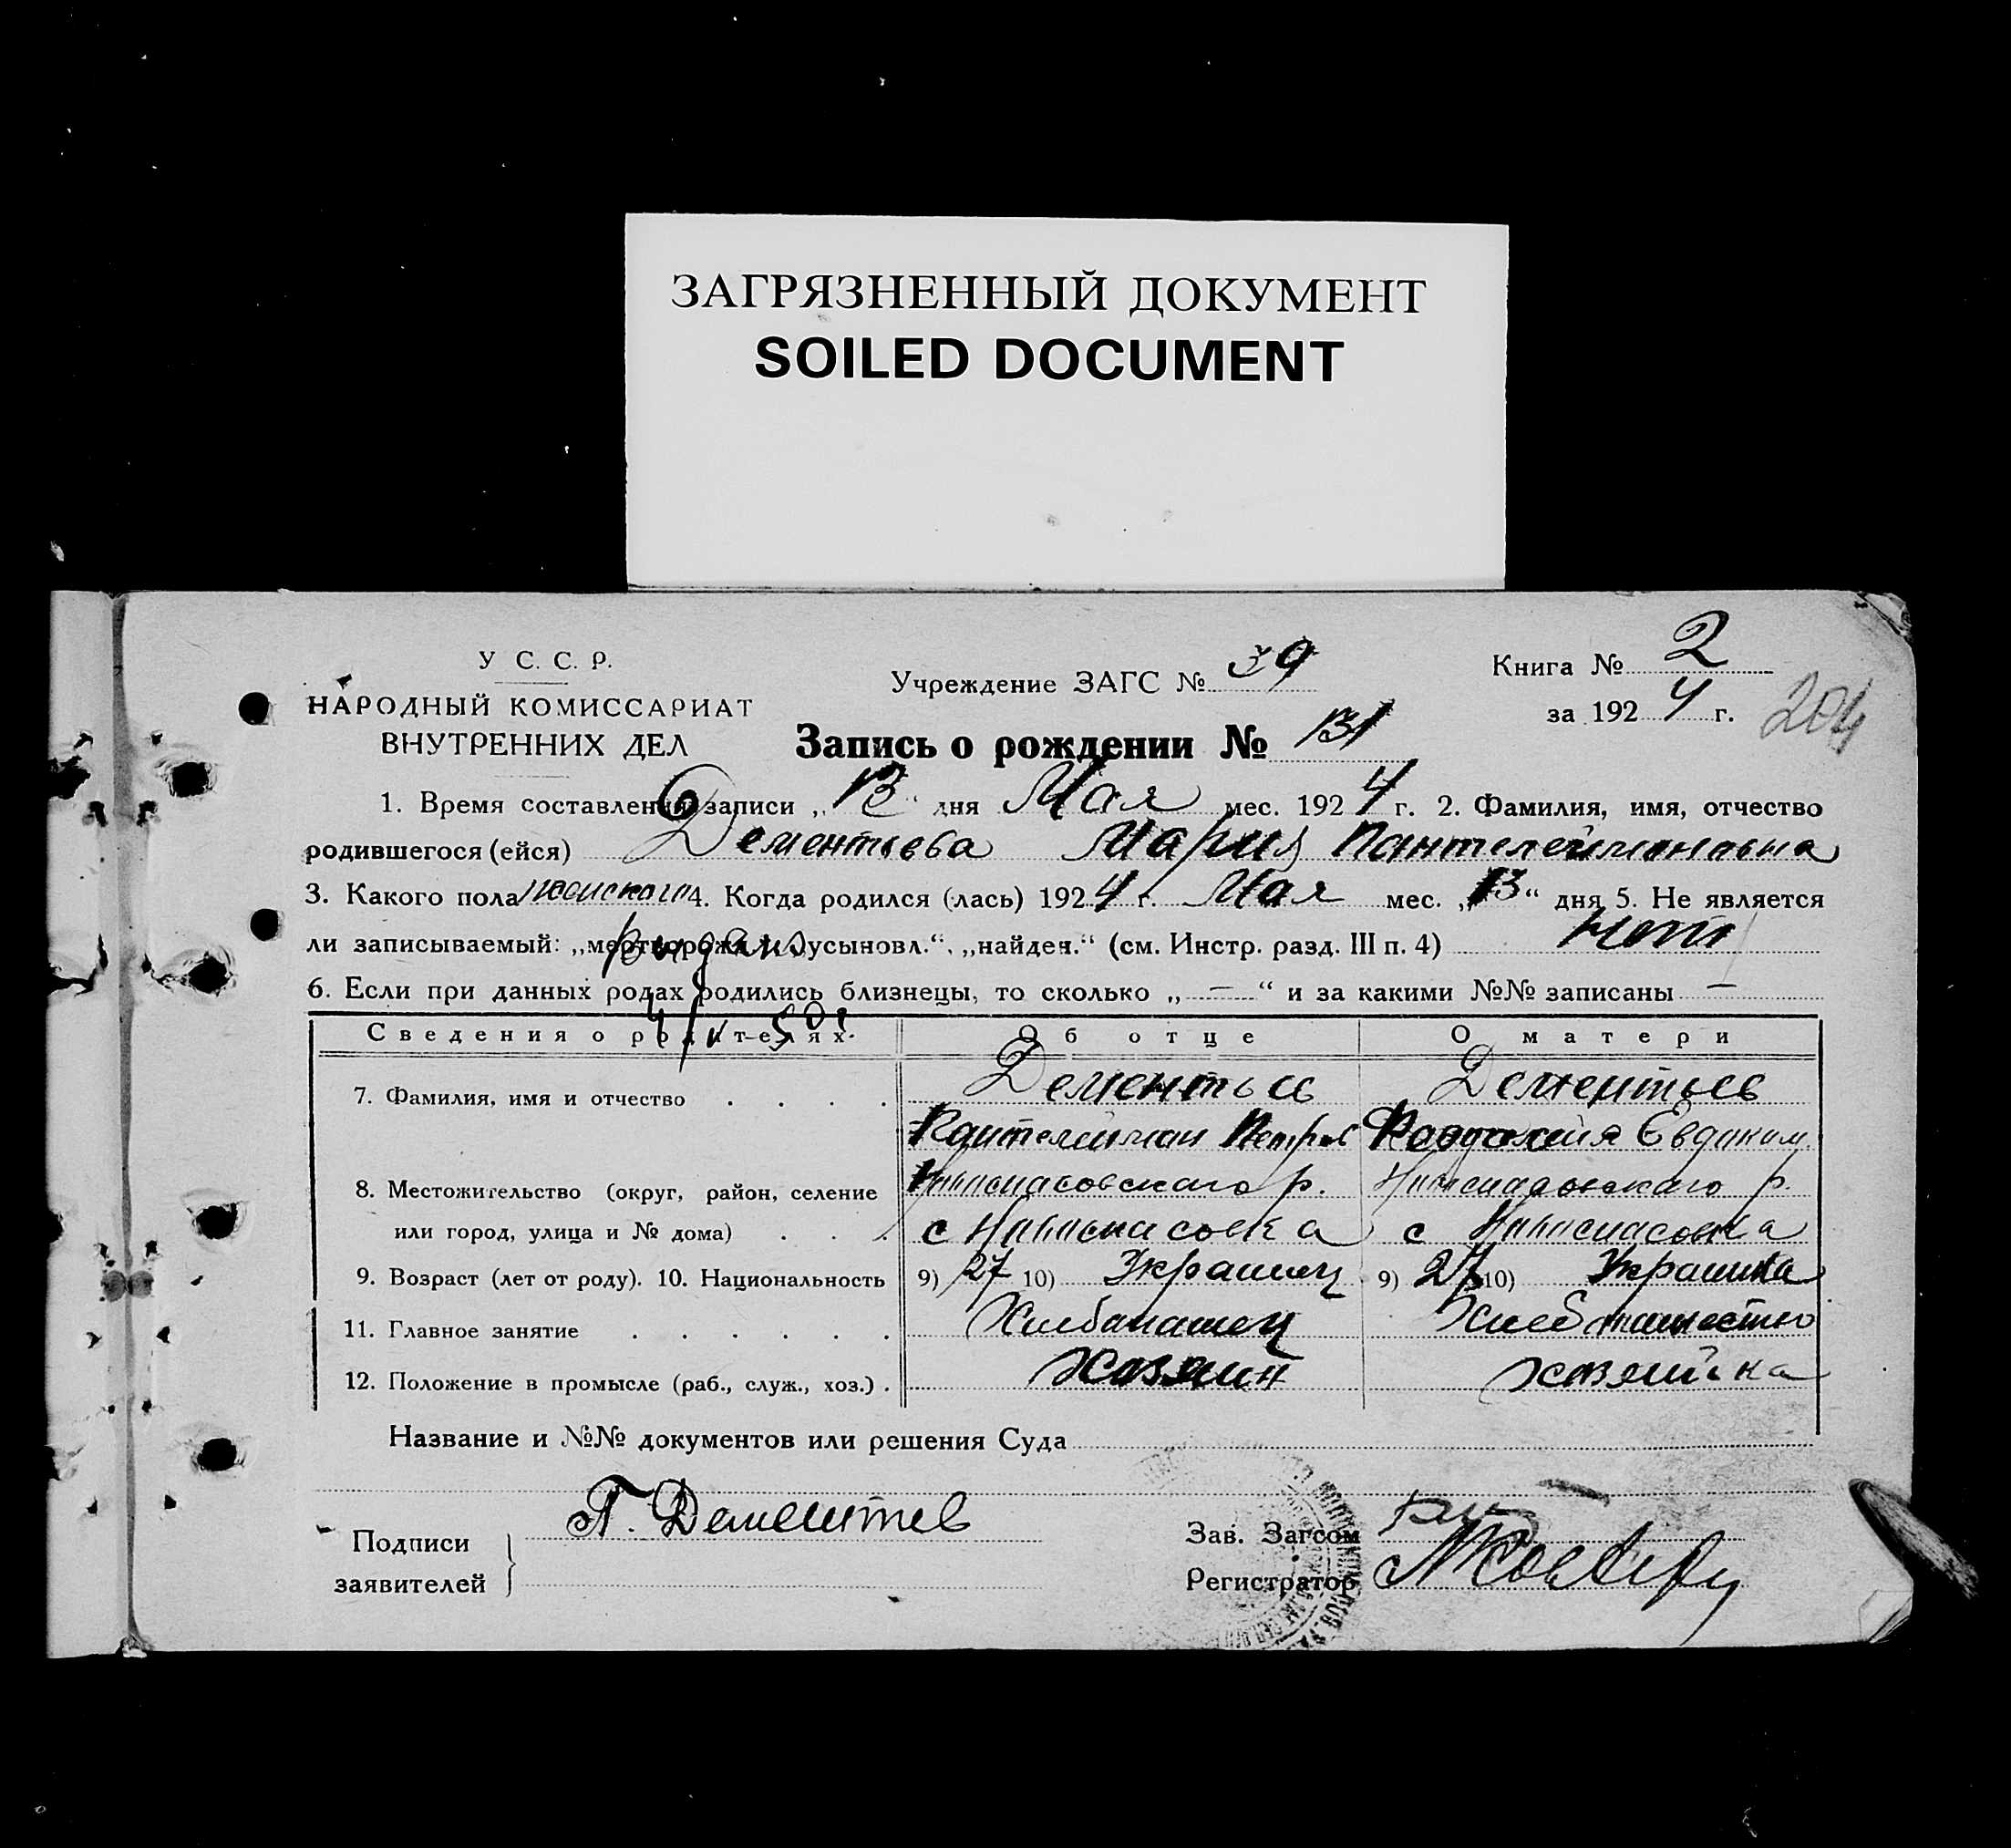 ЗАГРЯЗНЕННЫЙ ДОКУМЕНТ
SOILED DOCUMENT
У С. С. Р.
НАРОДНЫЙ КОМИССАРИАТ
ВНУТРЕННИХ ДЕЛ
Учреждение ЗАГС № 39
Книга № 2
за 1924 г.
204
Запись о рождении № 131
1. Время составления записи „13“ дня Мая мес. 1924 г. 2. Фамилия, имя, отчество
родившегося (ейся) Дементьева Мария Пантелеймоновна
3. Какого пола женского 4. Когда родился (лась) 1924 г. Мая мес. „13“ дня 5. Не является
ли записываемый: „мертворожд.“, „усыновл.“, „найден.“ (см. Инстр. разд. III п. 4) нет
6. Если при данных родах родились близнецы, то сколько „—“ и за какими №№ записаны —
Сведения о родителях. Об отце О матери
7. Фамилия, имя и отчество . . . . Дементьев Дементьев
Пантелеймон Петров Евдоким.
8. Местожительство (округ, район, селение р. р.
или город, улица и № дома) . . . с с
9. Возраст (лет от роду). 10. Национальность 9) 27 10) Украинец 9) 27 10) Украинка
11. Главное занятие . . . . . .
12. Положение в промысле (раб., служ., хоз.) . хозяин хозяйка
Название и №№ документов или решения Суда
Подписи
заявителей
П. Дементьев
Зав. Загсом
Регистратор